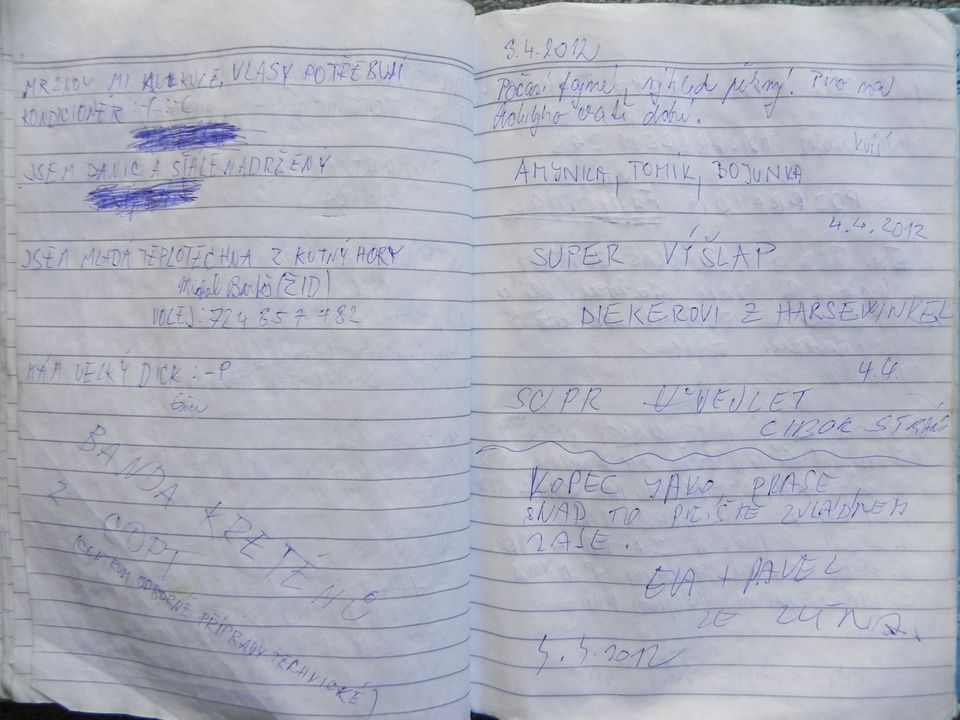 MRZLOU MI KULE, VLASY POTŘEBUJÍ
KONDICIONER :-( :-(
JSEM DANIC A STÁLE NADRŽENÝ
JSEM MLADÁ TEPLOTECHNA Z KUTNÝ HORY
(ŽID)
VOLEJ: 724 857 782
MÁM VELKÝ DICK :-P
BANDA KRETÉNŮ
Z COPT
(CENTRUM ODBORNÉ PŘÍPRAVY TECHNICKÉ)
3.4.2012
Počasí fajné, výhled pěkný! Pro
dobrý.
AMYNKA, TOMÍK, BOJUNKA
4.4.2012
SUPER VÝŠLAP
DIEKEROVI Z HARSEWINKEL
4.4.
SUPR VEJLET
KOPEC JAKO PRASE
SNAD TO PŘIŠTĚ ZVLÁDNEM
ZASE.
EVA + PAVEL
ZE
5.5.2012